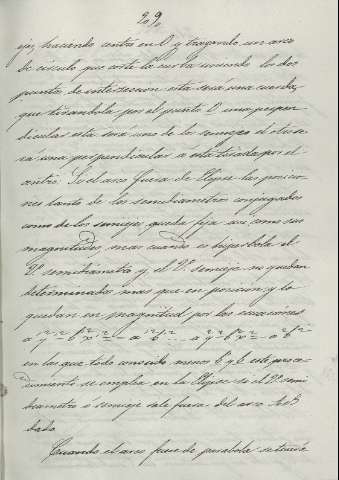 209
ejes haciendo centro en O y trazando un arco
de círculo que corte la curva uniendo los dos
puntos de intersección esta será una cuerda,
que tirándola por el punto O una perpen
dicular esta será uno de los semiejes el otro se
ra una perpendicular a esta tirada por el
centro. Si el arco fuera de Elipse las posicio
nes tanto de los semidiametros conjugados
como de los semiejes queda fija asi como sus
magnitudes, mas cuando es hiperbola el
2º semidiametro y el 2º semieje no quedan
determinados mas que en posicion y lo
quedan en magnitud por las ecuaciones
en las que todo conocido menos b' y b este proce
dimiento se emplea en la Elipse si el 2º semi
diametro ó semieje sale fuera del arco AB
dado
Cuando el arco fuese de parabola se tirará